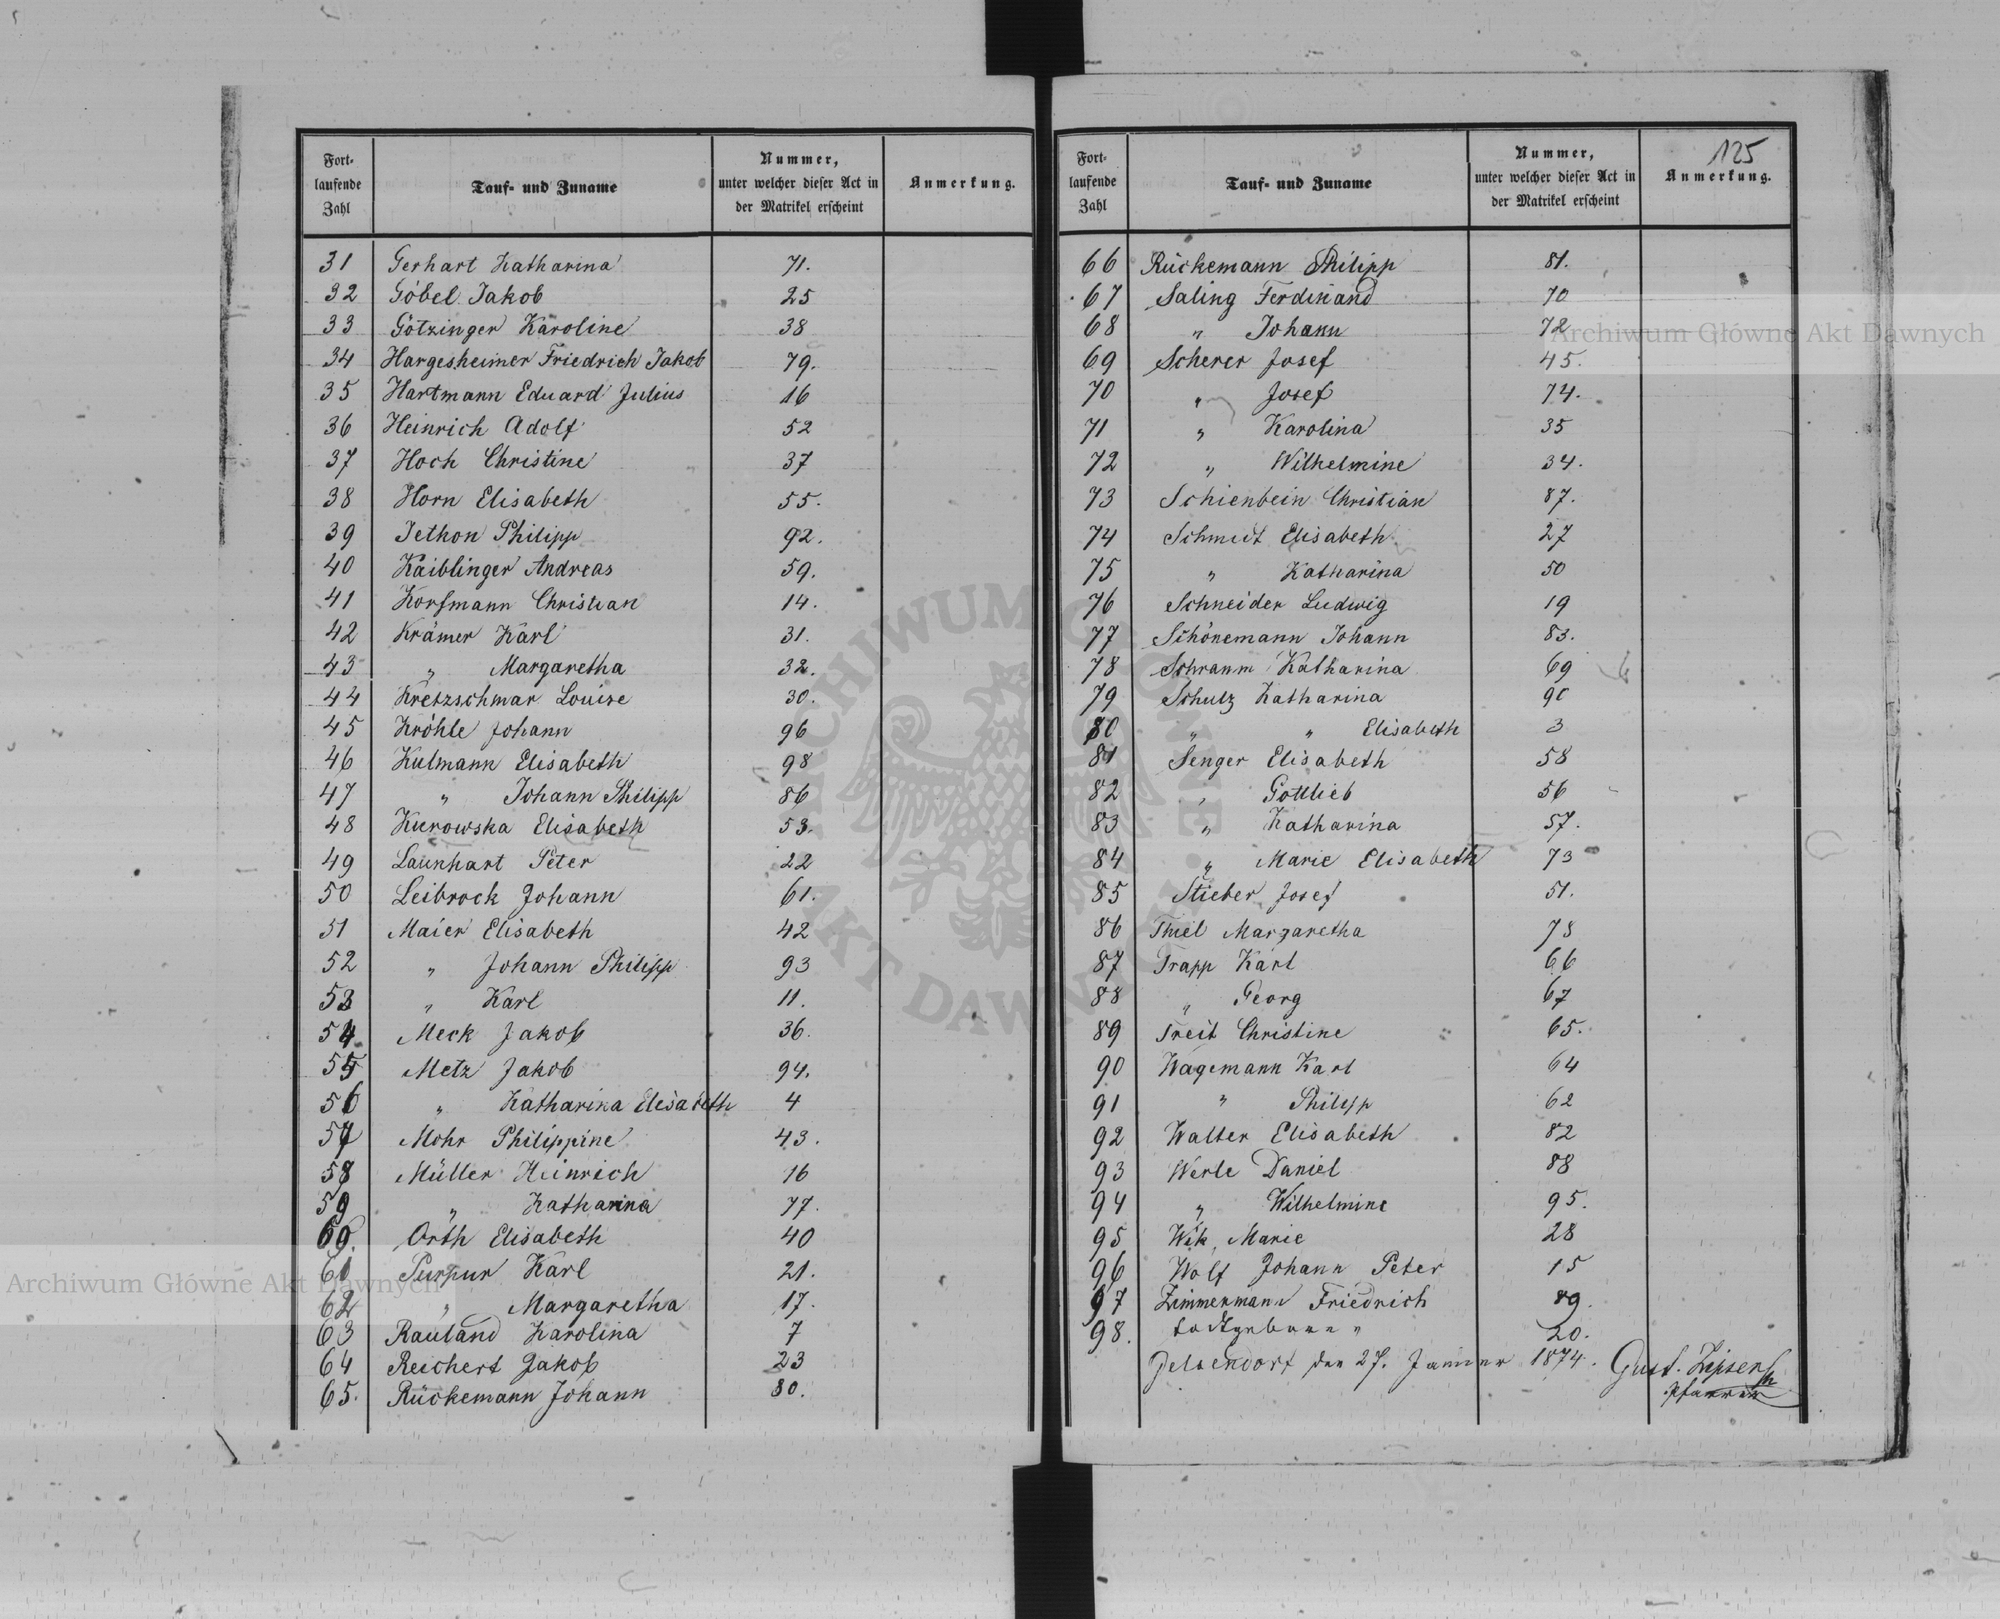 Fort-
laufende
Zahl
Tauf- und Zuname
Nummer,
unter welcher dieser Act in
der Matrikel erscheint
Anmerkung.
31 Gerhart Katharina 71.
32 Göbel Jakob 25
33 Götzinger Karoline 38
34 Hargesheimer Friedrich Jakob 79.
35 Hartmann Eduard Julius 16
36 Heinrich Adolf 52
37 Hoch Christine 37
38 Horn Elisabeth 55.
39 Jethon Philipp 92.
40 Kaiblinger Andreas 59.
41 Korfmann Christian 14.
42 Krämer Karl 31.
43 " Margaretha 32.
44 Kretzschmar Louise 30.
45 Kröhle Johann 96
46 Kulmann Elisabeth 98
47 " Johann Philipp 86
48 Kurowska Elisabeth 53.
49 Launhart Peter 22
50 Leibrock Johann 61.
51 Maier Elisabeth 42
52 " Johann Philipp 93
53 " Karl 11.
54 Meck Jakob 36.
55 Metz Jakob 94.
56 " Katharina Elisabeth 4
57 Mohr Philippine 43.
58 Müller Heinrich 76
59 " Katharina 77.
60. Orth Elisabeth 40
61 Purpur Karl 21.
62 " Margaretha 17.
63 Rauland Karolina 7
64 Reichert Jakob 23
65. Rückemann Johann 80.
125
Fort-
laufende
Zahl
Tauf- und Zuname
Nummer,
unter welcher dieser Act in
der Matrikel erscheint
Anmerkung.
66 Rückemann Philipp 81.
67 Saling Ferdinand 70
68 " Johann 72
69 Scherer Josef 45.
70 " Josef 74.
71 " Karolina 35
72 " Wilhelmine 34.
73 Schienbein Christian 87.
74 Schmidt Elisabeth 27
75 " Katharina 50
76 Schneider Ludwig 19
77 Schönemann Johann 83.
78 Schramm Katharina 69
79 Schulz Katharina 90
80 " " Elisabeth 3
81 Senger Elisabeth 58
82 " Gottlieb 56
83 " Katharina 57.
84 " Marie Elisabeth 73
85 Stieber Josef 51.
86 Thiel Margaretha
87 Trapp Karl 66
88 " Georg 67
89 Treit Christine 65.
90 Wagemann Karl 64
91 " Philipp 62
92 Walter Elisabeth 82
93 Werle Daniel 88
94 " Wilhelmine 95.
95 Wik, Marie 28
96 Wolf Johann Peter 15
97 Zimmermann Friedrich 89.
98. 20.
Gelsendorf den 27. Jänner 1874. Gust. Zipser
Pfarrer
Archiwum Główne Akt Dawnych
Archiwum Główne Akt Dawnych
ARCHIWUM GŁÓWNE AKT DAWNYCH